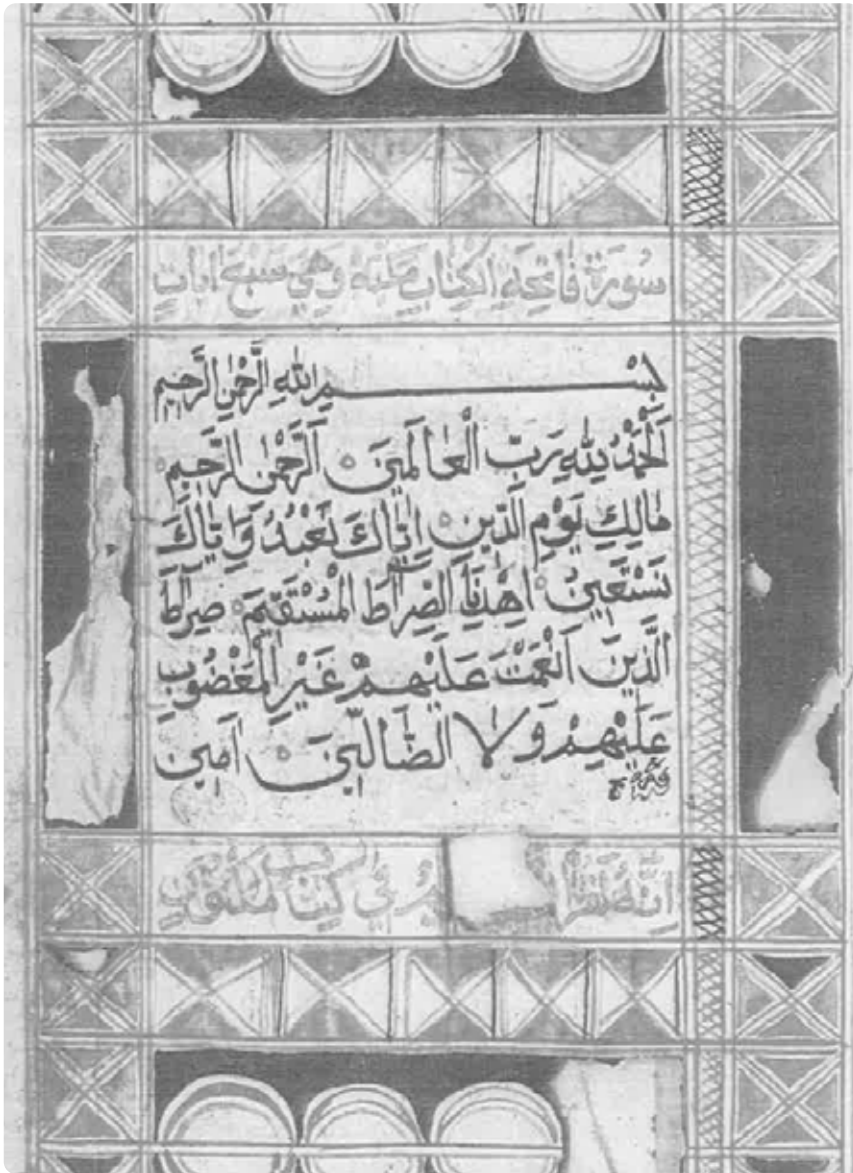 سُورَةُ فَاتِحَةِ الْكِتَابِ مَكِّيَّةٌ وَهِيَ سَبْعُ آيَاتٍ
بِسْمِ اللهِ الرَّحْمٰنِ الرَّحِيمِ
اَلْحَمْدُ لِلّٰهِ رَبِّ الْعَالَمِينَ اَلرَّحْمٰنِ الرَّحِيمِ
مَالِكِ يَوْمِ الدِّينِ اِيَّاكَ نَعْبُدُ وَاِيَّاكَ
نَسْتَعِينُ اِهْدِنَا الصِّرَاطَ الْمُسْتَقِيمَ صِرَاطَ
الَّذِينَ اَنْعَمْتَ عَلَيْهِمْ غَيْرِ الْمَغْضُوبِ
عَلَيْهِمْ وَلَا الضَّالِّينَ اٰمِين
اِنَّهُ لَقُرْآنٌ فِي كِتَابٍ مَكْنُونٍ